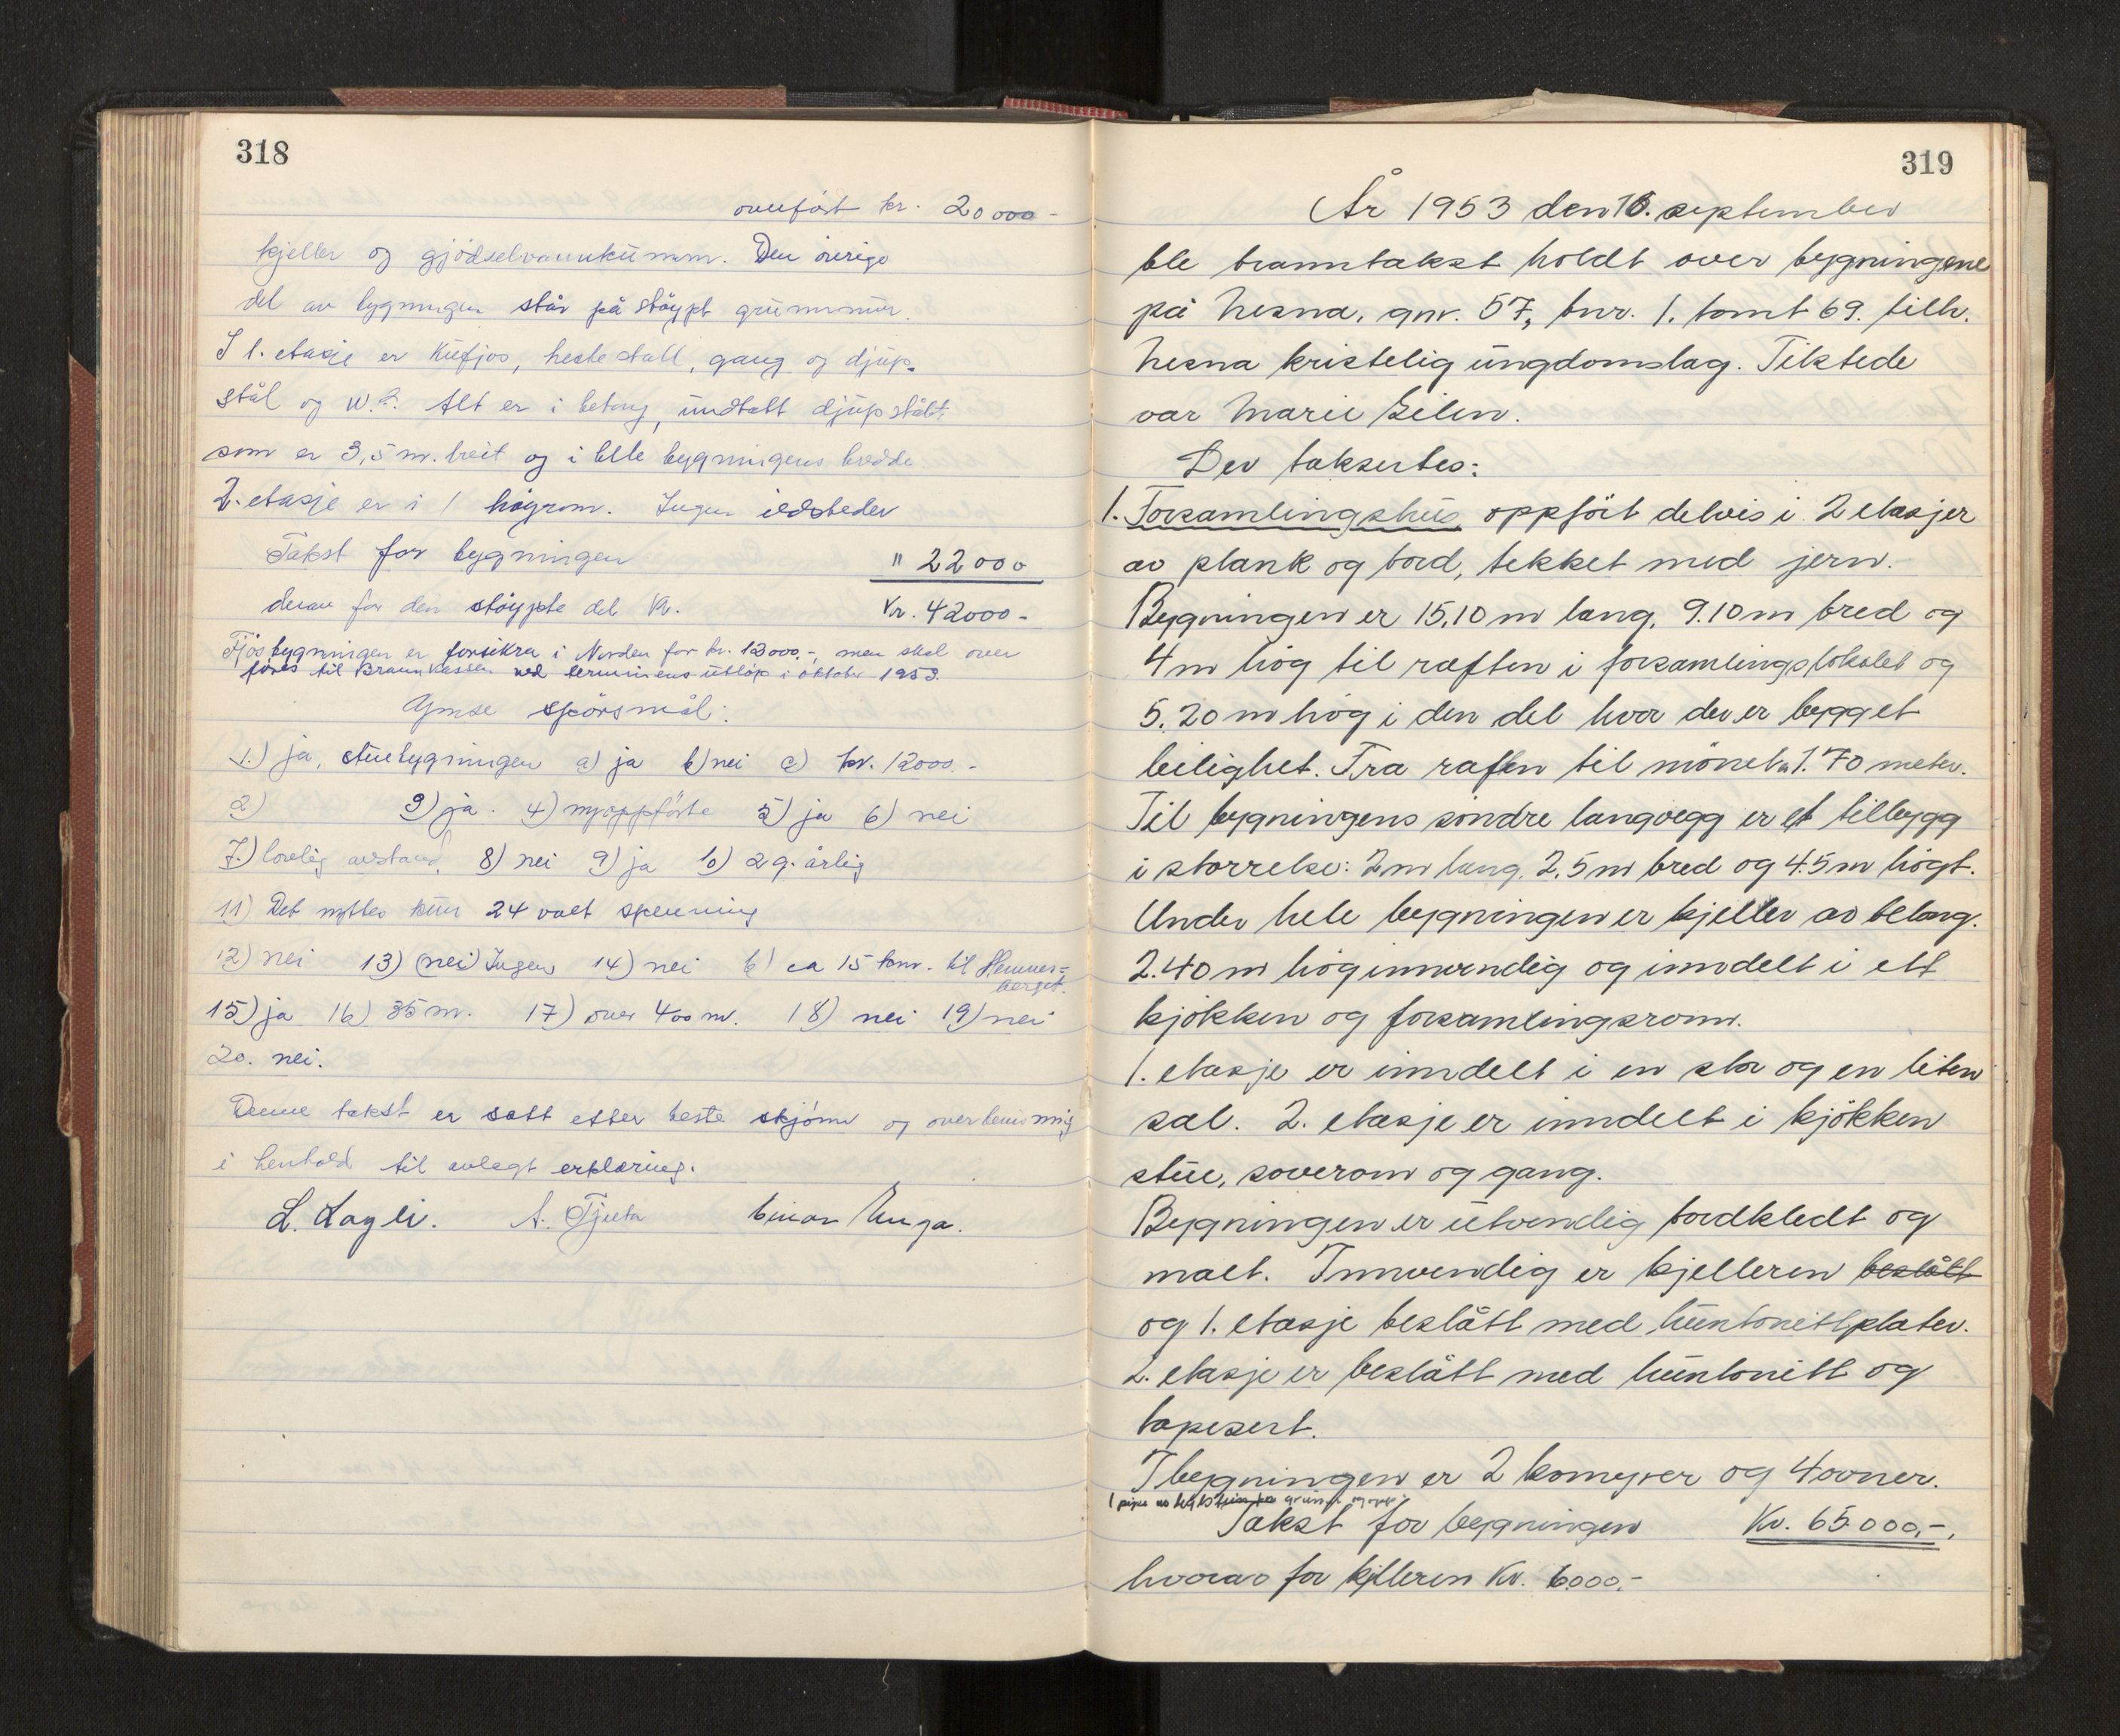 318
overført kr. 20000-
kjeller og gjödselvannkumm. Den övrige
del av bygningen står på stöypt grunnmur.
I 1. etasje er kufjos, hestestall, gang og djup-
stål og W.C. Alt er i betong, undtatt djupstålet
som er 3,5 m. breit og i hele bygningens bredde
2. etasje er i 1 högrom. Ingen ildsteder
Takst for bygningen " 22000
derav for den stöypte del Kr. Kr. 42000-
Fjösbygningen er forsikra i Norden for kr. 12000,-, men skal over
föres til Brannkassen ved terminens utlöp i oktober 1953.
Ymse spörsmål:
1.) ja, stuebygningen a) ja b) nei c) kr. 12000.-
2) 3) ja. 4) nyoppförte 5) ja 6) nei
7.) lovlig avstand. 8) nei 9) ja 10) 2 g. årlig
11) Det nyttes kun 24 volt spenning
12) nei 13) (nei) Ingen 14) nei b) ca 15 km. til Hemnes-
berget.
15) ja 16) 35 m. 17) over 400 m. 18) nei 19) nei
20. nei.
Denne takst er satt etter beste skjönn og overbevisning
i henhold til avlagt erklæring.
L. Lagli. A. Tjuta Einar Unga.
319
År 1953 den 16. september
ble branntakst holdt over bygningene
på Nesna, gnr. 57, bnr. 1. tomt 69. tilh.
Nesna kristelig ungdomslag. Tilstede
var Marie Zilen.
Der taksertes:
1. Forsamlingshus oppfört delvis i 2 etasjer
av plank og bord, tekket med jern.
Bygningen er 15,10 m lang, 9.10 m bred og
4 m hög til raften i forsamlingslokalet og
5.20 m hög i den del hvor der er bygget
leilighet. Fra raften til mönet er 1.70 meter.
Til bygningens söndre langvegg er et tilbygg
i störrelse: 2 m lang, 2,5 m bred og 4.5 m högt.
Under hele bygningen er kjeller av betong.
2.40 m hög innvendig og inndelt i ett
kjökken og forsamlingsrom.
1. etasje er inndelt i en stor og en liten
sal. 2. etasje er inndelt i kjökken
stue, soverom og gang.
Bygningen er utvendig bordkledt og
malt. Innvendig er kjelleren beslått
og 1. etasje beslått med huntonittplater.
2. etasje er beslått med huntonitt og
tapesert.
I bygningen er 2 komfyrer og 4 ovner.
1 pipe av teglstein fra grunnen og opp.
Takst for bygningen Kr. 65000,-.
hvorav for kjelleren Kr. 6000,-